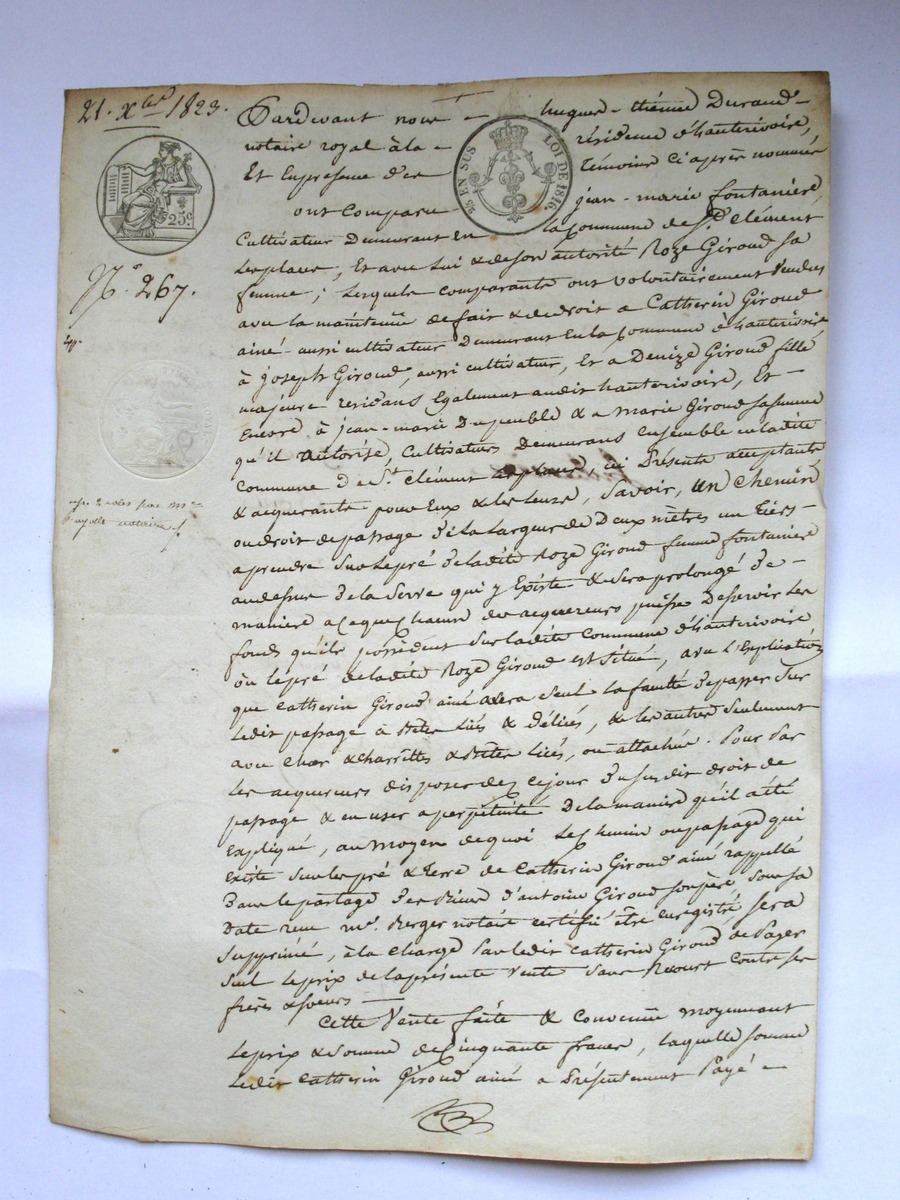 21. Xbre 1823.
25 EN SUS
LOI DE 1816
25c
No. 267.
Pardevant nous hugue-thienne Durand
notaire royal à la résidence d'hauterivoire,
Et En présence des témoins Ci après nommés
ont Comparu jean-marie fontaniere
Cultivateur Demeurant En la Commune de St. Clément
Lesplaces, Et avec Lui & de son autorité Roze Giroud sa
femme; Lesquels comparants ont volontairement Vendus
avec la maintenue de fait & de droit a Catherin Giroud
ainé aussi cultivateur Demeurant En la Commune d'hauterivoire
à joseph Giroud, aussi cultivateur, Et a Denize Giroud fille
majeure residans Egalement audit hauterivoire, Et
Encore à jean-marie Dupeuble & a marie Giroud sa femme
qu'il autorise, Cultivateurs Demeurans Ensemble en ladite
Commune De St. Clément Lesplaces, ici Présents acceptants
& acquerants pour Eux & les leurs, Savoir, un Chemin
ou droit de passage de la Largeur de Deux mètres un tiers
a prendre Sur Le pré de ladite Roze Giroud femme fontaniere
au dessus de la Serve qui y Existe & Sera prolongé de
maniere a ce que chacun des acquereurs puisse Desservir Les
fonds qu'ils possèdent Sur ladite Commune d'hauterivoire
où le pré de ladite Roze Giroud est Situé, avec l'Explication
que Catherin Giroud ainé aura Seul La faculté de passer Sur
Ledit passage à Bètes Liés & Déliés, & les autres Seulement
avec Chars & charrettes & Bètes Liés, ou attachés. Pour Par
Les acquereurs disposer dez ce jour du susdit droit de
passage & en user a perpétuité De la maniere qu'il a été
Expliqué, au moyen de quoi Le Chemin ou passage qui
Existe Sur Les pré & terre de Catherin Giroud ainé rappellé
Dans Le partage des Biens d'antoine Giroud son père, sous sa
Date reçu me. Berger notaire certifié être enregistré, Sera
Supprimé, à la Charge Par Ledit Catherin Giroud de Payer
Seul Le prix de la présente Vente Sans Recourt Contre Ses
frères & soeurs
Cette Vente faite & Convenue moyennant
Le prix & Somme de Cinquante francs, Laquelle Somme
Ledit Catherin Giroud ainé a Présentement Payé